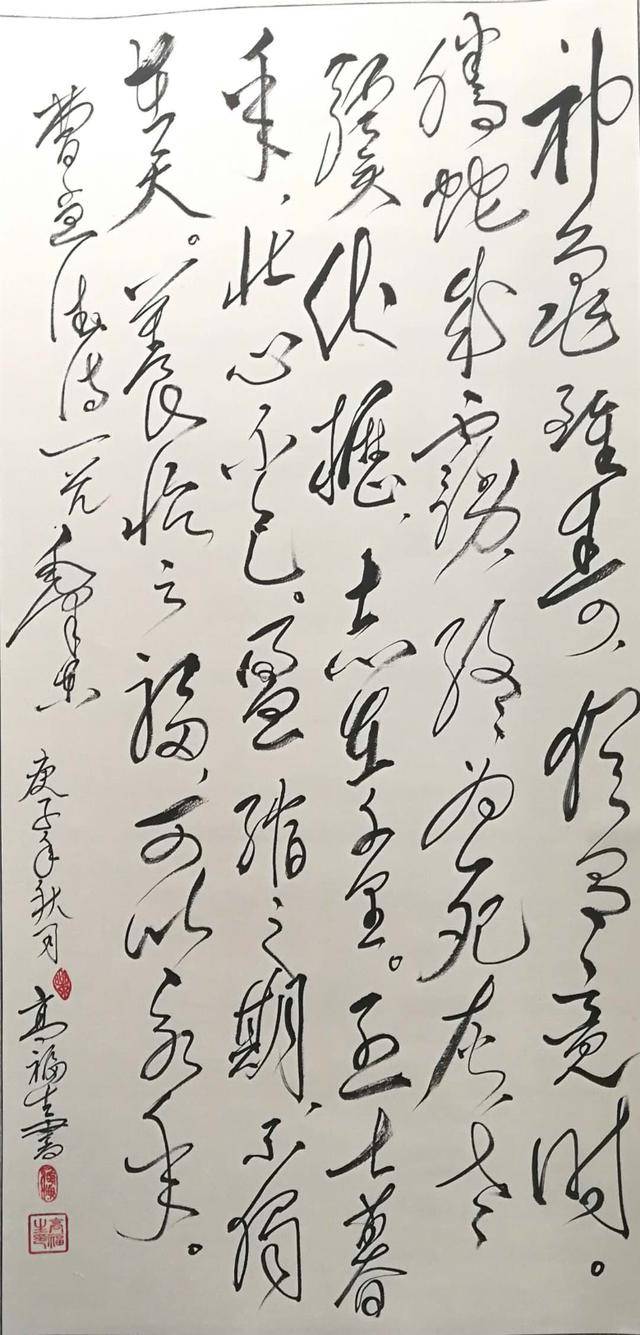 神龜雖壽、猶有竟時。
騰蛇乘霧、終為死灰、老
驥伏櫪、志在千里。烈士暮
年、壯心不已。盈縮之期、不獨
在天。養怡之福、可以永年。
曹孟德詩一首 毛澤東 庚子年秋月 高福生書
高福生印